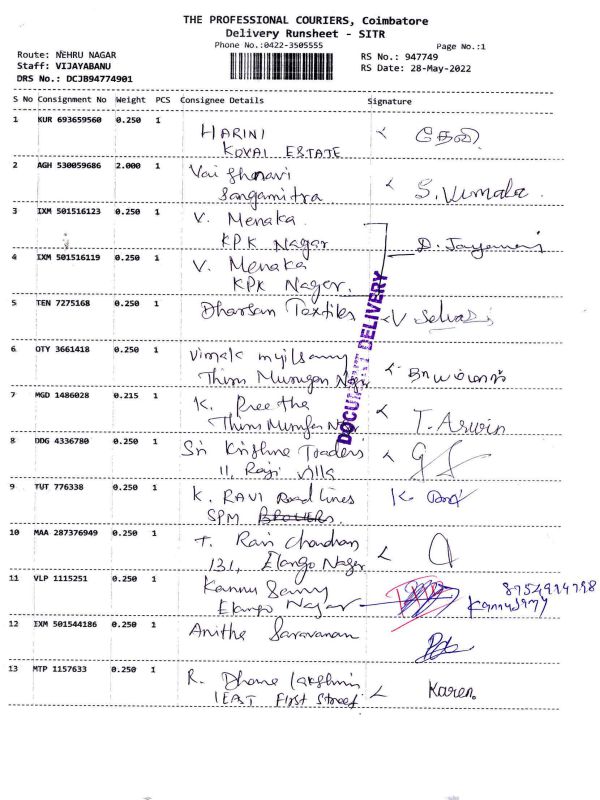 THE PROFESSIONAL COURIERS, Coimbatore
Delivery Runsheet - SITR
Phone No.:0422-3505555
Page No.:1
Route: NEHRU NAGAR
RS No.: 947749
Staff: VIJAYABANU
RS Date: 28-May-2022
DRS No.: DCJB94774901
S No Consignment No Weight PCS Consignee Details Signature
1 KUR 693659560 0.250 1 HARINI தேவி
KOVAI ESTATE
2 AGH 530059686 2.000 1 Vaishnavi
Sangamitra S. Vimala
3 IXM 501516123 0.250 1 V. Menaka
KPK Nagar D. Jayamani
4 IXM 501516119 0.250 1 V. Menaka
KPK Nagar.
DOCUMENT DELIVERY
5 TEN 7275168 0.250 1 Dharsan Textiles V Selvari
6 OTY 3661418 0.250 1 Vimala mylsamy
Thiru Murugan Nagar
7 MGD 1486028 0.215 1 K. Preetha
Thiru Murugan Nagar T. Arwin
8 DDG 4336780 0.250 1 Sri Krishna Traders
11, Raji Villa
9 TUT 776338 0.250 1 K. RAVI Road Lines K.
SPM
10 MAA 287376949 0.250 1 T. Ravi Chandran
131, Elango Nagar
11 VLP 1115251 0.250 1 Kannu Samy
Elango Nagar
12 IXM 501544186 0.250 1 Anitha Saravanan
13 MTP 1157633 0.250 1 R. Dhana lakshmi
1EAST First Street Karen.